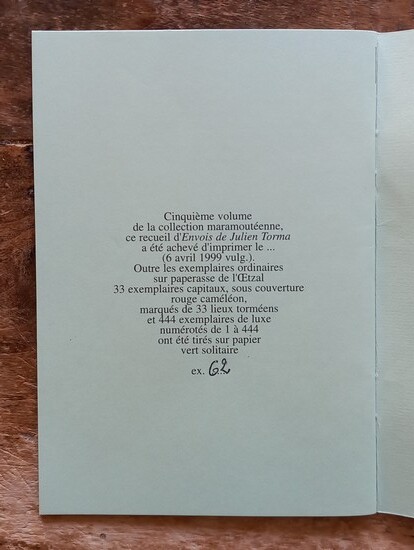 Cinquième volume
de la collection maramoutéenne,
ce recueil d'Envois de Julien Torma
a été achevé d'imprimer le ...
(6 avril 1999 vulg.).
Outre les exemplaires ordinaires
sur paperasse de l'Œtzal
33 exemplaires capitaux, sous couverture
rouge caméléon,
marqués de 33 lieux torméens
et 444 exemplaires de luxe
numérotés de 1 à 444
ont été tirés sur papier
vert solitaire
ex. 62